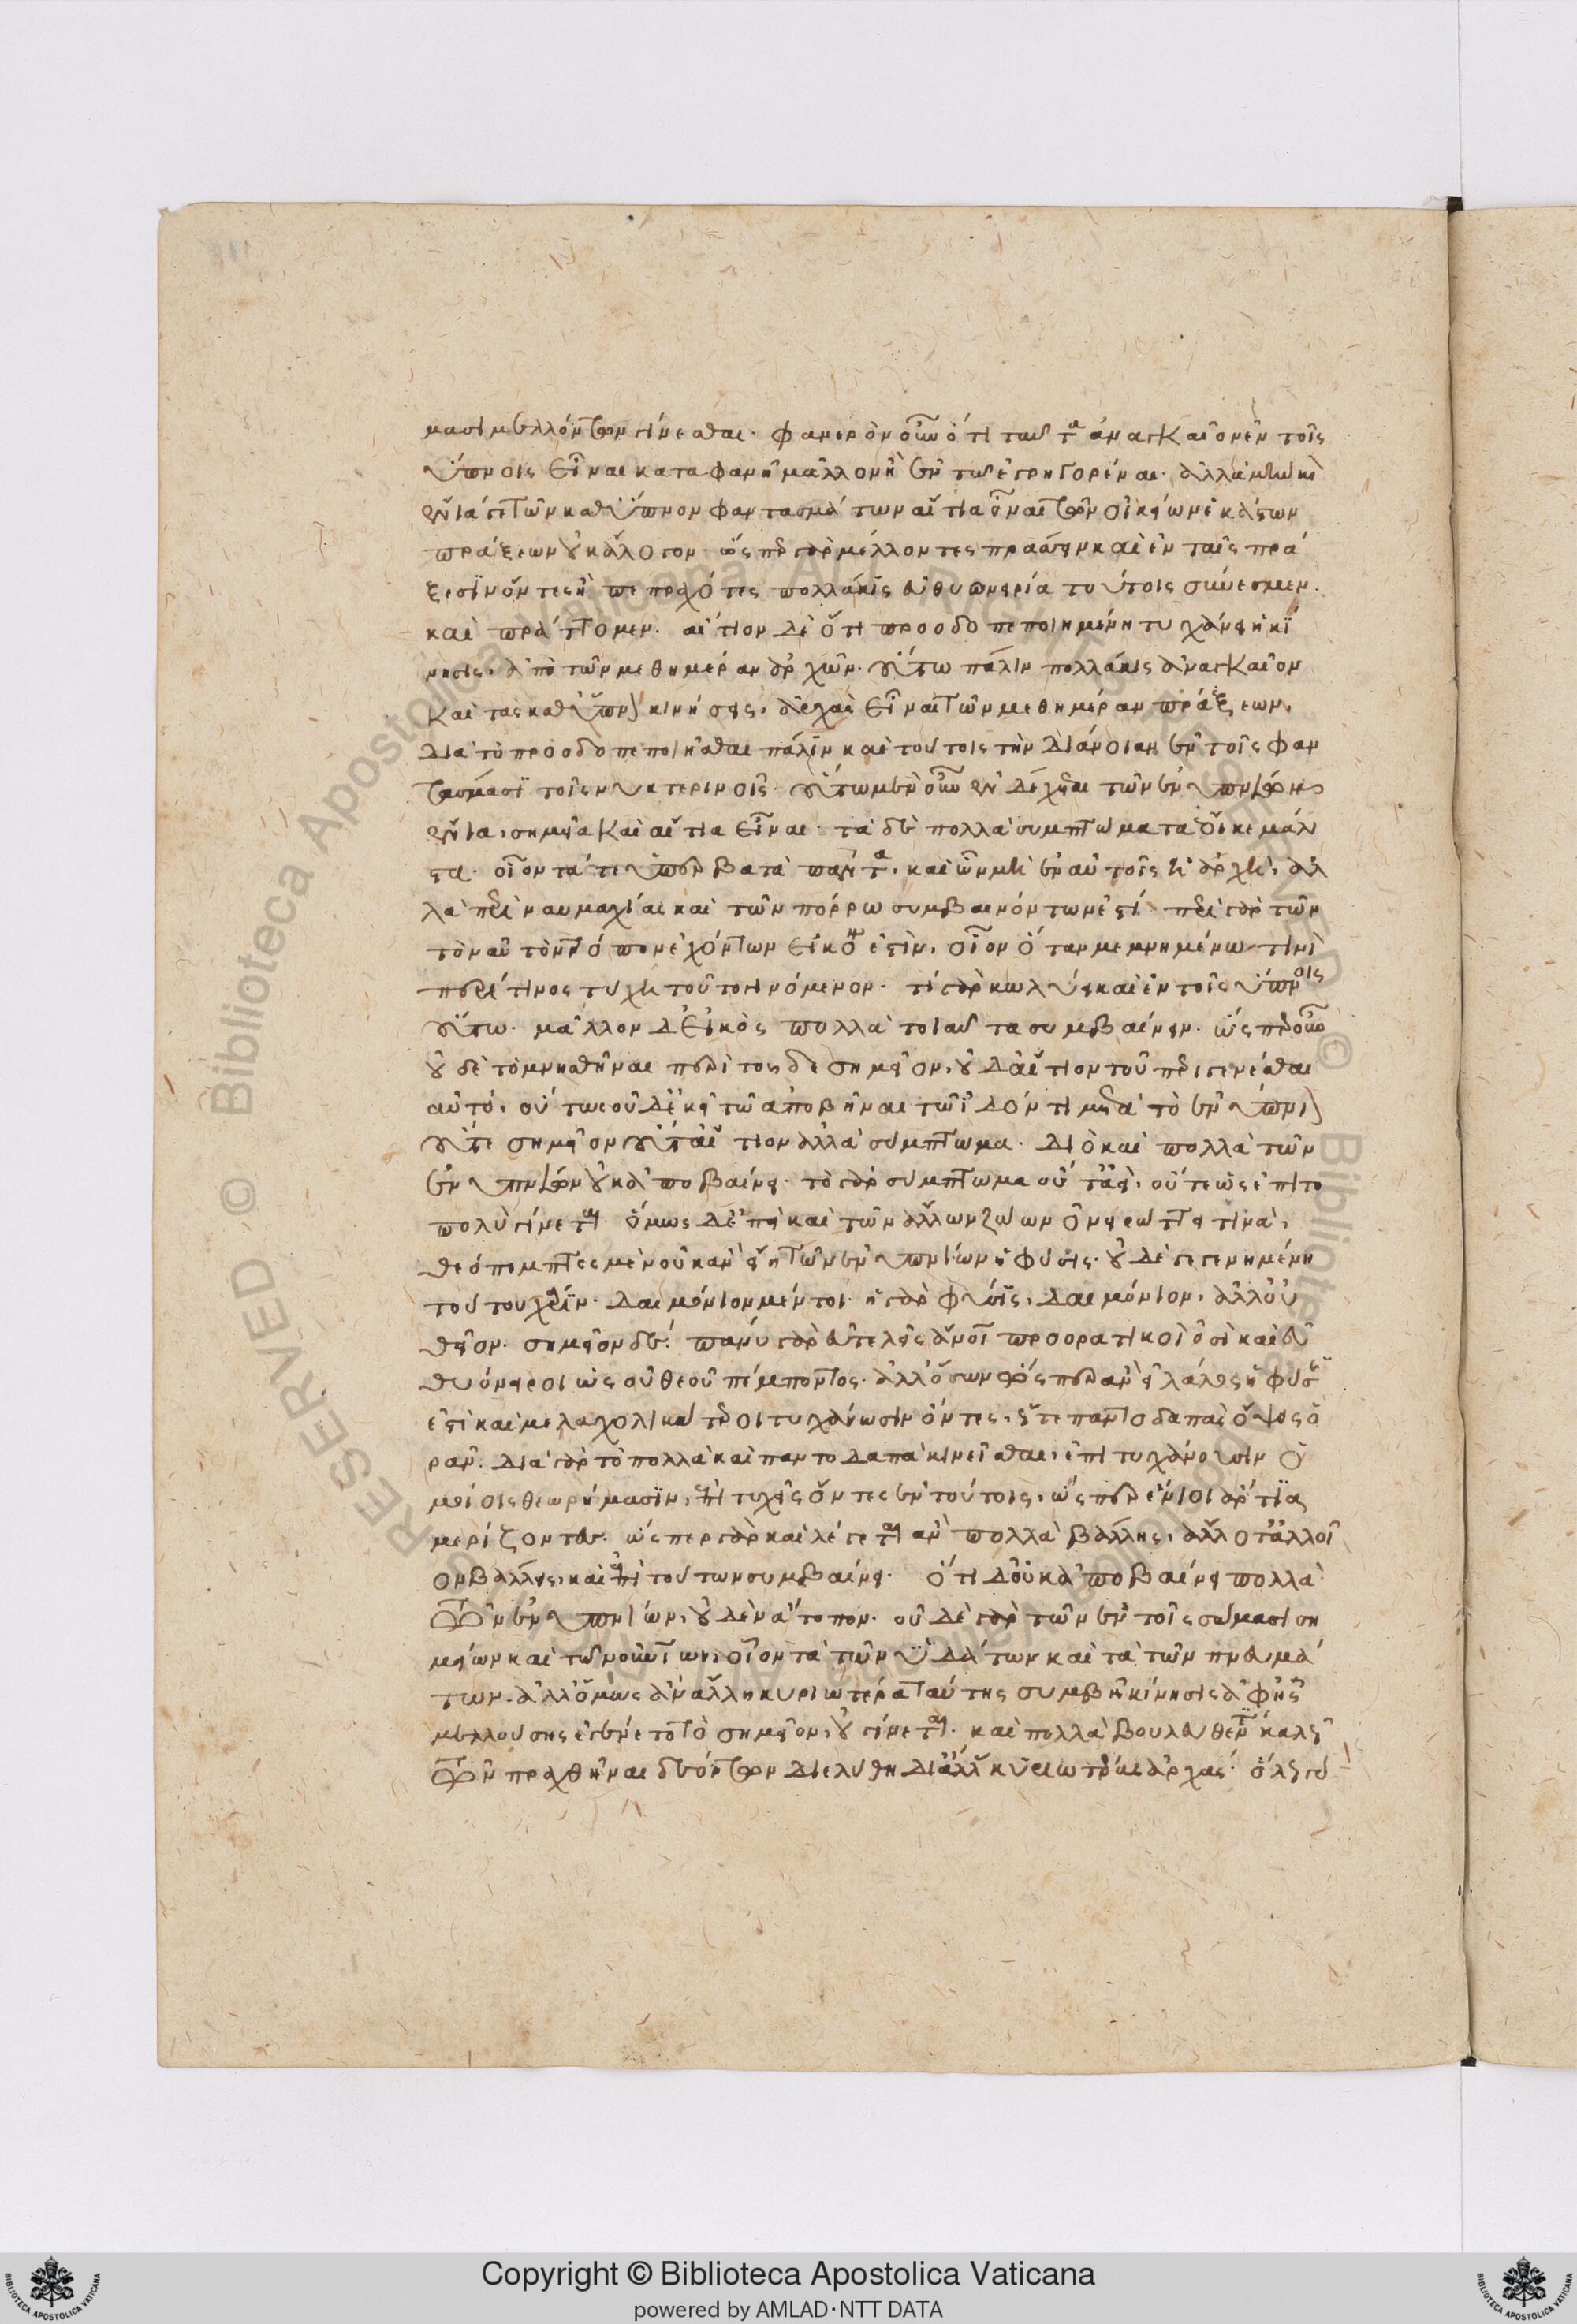 μασι μελλόντων γίνεσθαι· φανερὸν οὖν ὅτι ταῦτα ἀναγκαῖον ἐν τοῖς
ὕπνοις εἶναι καταφανῆ μᾶλλον ἢ ἐν τῷ ἐγρηγορέναι· ἀλλὰ μὴν καὶ
ἔνιά γε τῶν καθ' ὕπνον φαντασμάτων αἴτια εἶναι τῶν οἰκείων ἑκάστων
πράξεων οὐκ ἄλογον· ὥσπερ γὰρ μέλλοντες πράσσειν καὶ ἐν ταῖς πρά
ξεσιν ὄντες ἢ πεπραχότες πολλάκις εὐθυονειρίᾳ τούτοις σύνεσμεν.
καὶ πράττομεν. αἴτιον δὲ ὅτι προοδοπεποιημένη τυγχάνει ἡ κί
νησις, ἀπὸ τῶν μεθημέραν ἀρχῶν. οὕτω πάλιν πολλάκις ἀναγκαῖον
καὶ τὰς καθ' ὕπνον κινήσεις, ἀρχαὶ εἶναι τῶν μεθημέραν πράξεων,
διὰ τὸ προοδοπεποιῆσθαι πάλιν καὶ τούτοις τὴν διάνοιαν ἐν τοῖς φαν
τάσμασι τοῖς νυκτερινοῖς. οὕτω μὲν οὖν ἐνδέχεται τῶν ἐνυπνίων
ἔνια, σημεῖα καὶ αἴτια εἶναι· τὰ δὲ πολλὰ συμπτώματα ἔοικε μάλι
στα. οἷον τά τε ὑπερβατὰ πάντα, καὶ ὧν μὴ ἐν αὐτοῖς ἡ ἀρχὴ, ἀλ
λὰ περὶ ναυμαχίας καὶ τῶν πόρρω συμβαινόντων ἐστί· περὶ γὰρ τῶν
τὸν αὐτὸν τρόπον ἐχόντων εἰκὸς ἐστὶν, οἷον ὅταν μεμνημένῳ τινὶ
περί τινος τύχῃ τοῦτο γινόμενον. τί γὰρ κωλύει καὶ ἐν τοῖς ὕπνοις
οὕτω. μᾶλλον δ' εἰκὸς πολλὰ τοιαῦτα συμβαίνειν. ὥσπερ οὖν
οὐδὲ τὸ μνησθῆναι περὶ τοῦδε σημεῖον, οὐδ' αἴτιον τοῦ παραγενέσθαι
αὐτό, οὕτως οὐδ' ἐκεῖ τῷ ἀποβῆναι τῷ ἰδόντι μετὰ τὸ ἐνύπνιον
οὔτε σημεῖον οὔτ' αἴτιον ἀλλὰ σύμπτωμα. διὸ καὶ πολλὰ τῶν
ἐνυπνίων οὐκ ἀποβαίνει. τὸ γὰρ σύμπτωμα οὔτ' ἀεὶ, οὔτε ὡς ἐπιτο
πολὺ γίνεται. ὅμως δ' ἐπεὶ καὶ τῶν ἄλλων ζώων ὀνειρώττει τινὰ,
θεόπεμπτες μὲν οὐκ ἂν εἴη τῶν ἐνυπνίων ἡ φύσις. οὐδὲ γεγενημένη
τούτου χάριν. δαιμόνιον μέντοι· ἡ γὰρ φύσις, δαιμόνιον, ἀλλ' οὐ
θεῖον. σημεῖον δέ. πάνυ γὰρ εὐτελεῖς ἄνθρωποι προορατικοὶ εἰσὶ καὶ εὐ
θυόνειροι ὡς οὐ θεοῦ πέμποντος. ἀλλ' ὅσων ὥσπερ ἂν εἰ λάλος ἡ φύσις
ἐστὶ καὶ μελαγχολικώτεροι τυγχάνωσιν ὄντες, οὗτοι παντοδαπὰς ὄψεις ὁ
ρᾶν. διὰ γὰρ τὸ πολλὰ καὶ παντοδαπὰ κινεῖσθαι, ἐπιτυγχάνουσιν ὁ
μοίοις θεωρήμασιν, ἐπιτυχεῖς ὄντες ἐν τούτοις, ὥσπερ ἔνιοι ἄρτια
μερίζοντες. ὥσπερ γὰρ καὶ λέγεται ἂν πολλὰ βάλλῃς, ἄλλοτ' ἀλλοῖ
ον βάλλεις, καὶ ἐπὶ τούτων συμβαίνει. ὅτι δ' οὐκ ἀποβαίνει πολλὰ
τῶν ἐνυπνίων, οὐδὲν ἄτοπον. οὐδὲ γὰρ τῶν ἐν τοῖς σώμασι ση
μείων καὶ τῶν οὐρανίων, οἷον τὰ τῶν ὑδάτων καὶ τὰ τῶν πνευμά
των. ἀλλ' ὅμως ἂν ἄλλη κυριωτέρα ταύτης συμβῇ κίνησις ἀφ' ἧς
μελλούσης ἐγένετο τὸ σημεῖον, οὐ γίνεται. καὶ πολλὰ βουλευθέντα καλῶς
τῶν πραχθῆναι δεόντων διελύθη δι' ἄλλας κυριωτέρας ἀρχάς. ὅλως γὰρ